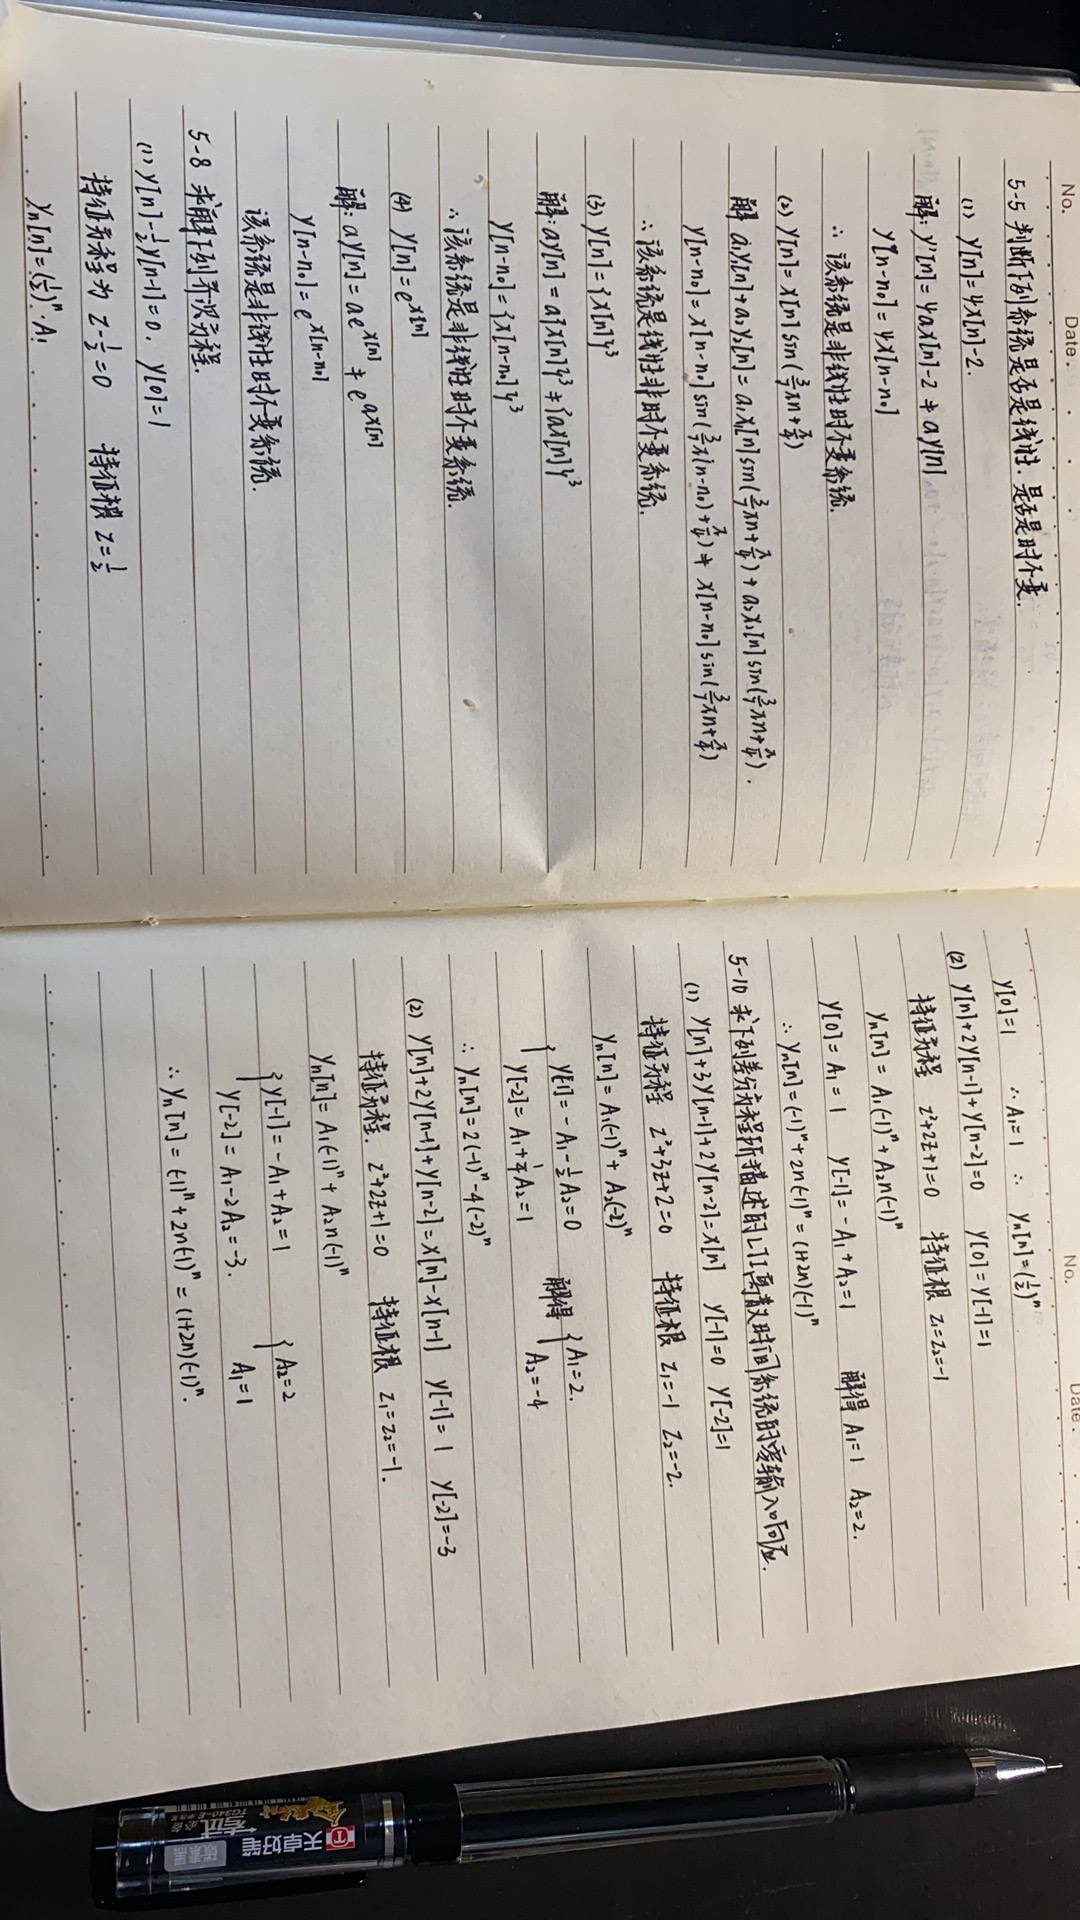 No.
Date.
5-5 判断下列系统是否是线性,是否是时不变.
(1) y[n]=4x[n]-2.
解: y'[n]=4ax[n]-2≠ay[n]
y[n-n₀]=4x[n-n₀]
∴ 该系统是非线性时不变系统.
(2) y[n]=x[n]sin(3/7πn+π/4)
解 a₁y₁[n]+a₂y₂[n]=a₁x₁[n]sin(3/7πn+π/4)+a₂x₂[n]sin(3/7πn+π/4).
y[n-n₀]=x[n-n₀]sin(3/7π(n-n₀)+π/4)≠x[n-n₀]sin(3/7πn+π/4)
∴ 该系统是线性非时不变系统.
(3) y[n]={x[n]}³
解: ay[n]=a{x[n]}³≠{ax[n]}³
y[n-n₀]={x[n-n₀]}³
∴ 该系统是非线性时不变系统.
(4) y[n]=e^x[n]
解: ay[n]=ae^x[n]≠e^ax[n]
y[n-n₀]=e^x[n-n₀]
该系统是非线性时不变系统.
5-8 求解下列齐次方程.
(1) y[n]-1/2y[n-1]=0, y[0]=1
特征方程为 z-1/2=0 特征根 z=1/2
yₙ[n]=(1/2)ⁿ·A₁
No.
Date.
y[0]=1 ∴A₁=1 ∴ yₙ[n]=(1/2)ⁿ
(2) y[n]+2y[n-1]+y[n-2]=0 y[0]=y[-1]=1
特征方程 z²+2z+1=0 特征根 z₁=z₂=-1
yₙ[n]=A₁(-1)ⁿ+A₂n(-1)ⁿ
y[0]=A₁=1 y[-1]=-A₁+A₂=1 解得 A₁=1 A₂=2.
∴ yₙ[n]=(-1)ⁿ+2n(-1)ⁿ=(1+2n)(-1)ⁿ
5-10 求下列差分方程所描述的LTI离散时间系统的零输入响应.
(1) y[n]+3y[n-1]+2y[n-2]=x[n] y[-1]=0 y[-2]=1
特征方程 z²+3z+2=0 特征根 z₁=-1 z₂=-2.
yₙ[n]=A₁(-1)ⁿ+A₂(-2)ⁿ
{y[-1]=-A₁-1/2A₂=0 解得 {A₁=2.
y[-2]=A₁+1/4A₂=1 A₂=-4
∴ yₙ[n]=2(-1)ⁿ-4(-2)ⁿ
(2) y[n]+2y[n-1]+y[n-2]=x[n]-x[n-1] y[-1]=1 y[-2]=-3
特征方程. z²+2z+1=0 特征根 z₁=z₂=-1.
yₙ[n]=A₁(-1)ⁿ+A₂n(-1)ⁿ
{y[-1]=-A₁+A₂=1 {A₂=2
y[-2]=A₁-2A₂=-3. A₁=1
∴ yₙ[n]=(-1)ⁿ+2n(-1)ⁿ=(1+2n)(-1)ⁿ.
天卓好笔
TG340-E
必备